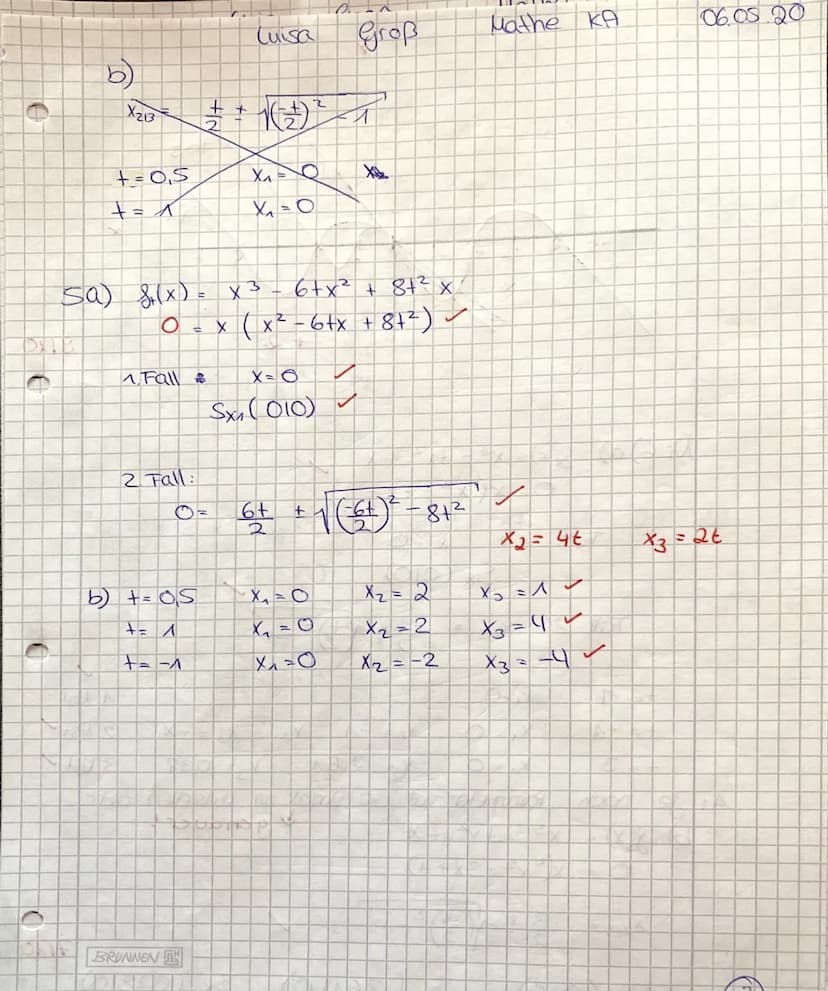 Luisa Groß Mathe KA 06.05.20
b)
x₂/₃ = t/2 ± √((-t/2)² - 1)
t = 0,5 x₁ = 0
t = 1 x₁ = 0
5a) fₜ(x) = x³ - 6tx² + 8t² x
0 = x ( x² - 6tx + 8t² ) ✓
1. Fall x = 0 ✓
Sx₁ ( 0|0 ) ✓
2 Fall:
0 = 6t/2 ± √((-6t/2)² - 8t²) ✓
x₂ = 4t x₃ = 2t
b) t = 0,5 x₁ = 0 x₂ = 2 x₃ = 1 ✓
t = 1 x₁ = 0 x₂ = 2 x₃ = 4 ✓
t = -1 x₁ = 0 x₂ = -2 x₃ = -4 ✓
BRUNNEN